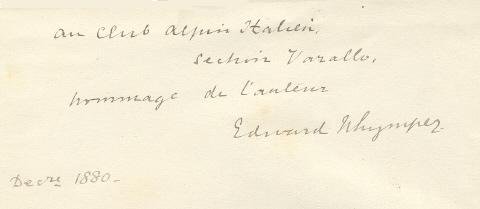 au Club Alpin Italien,
Section Varallo,
hommage de l'auteur
Edward Whymper.
Decre 1880-